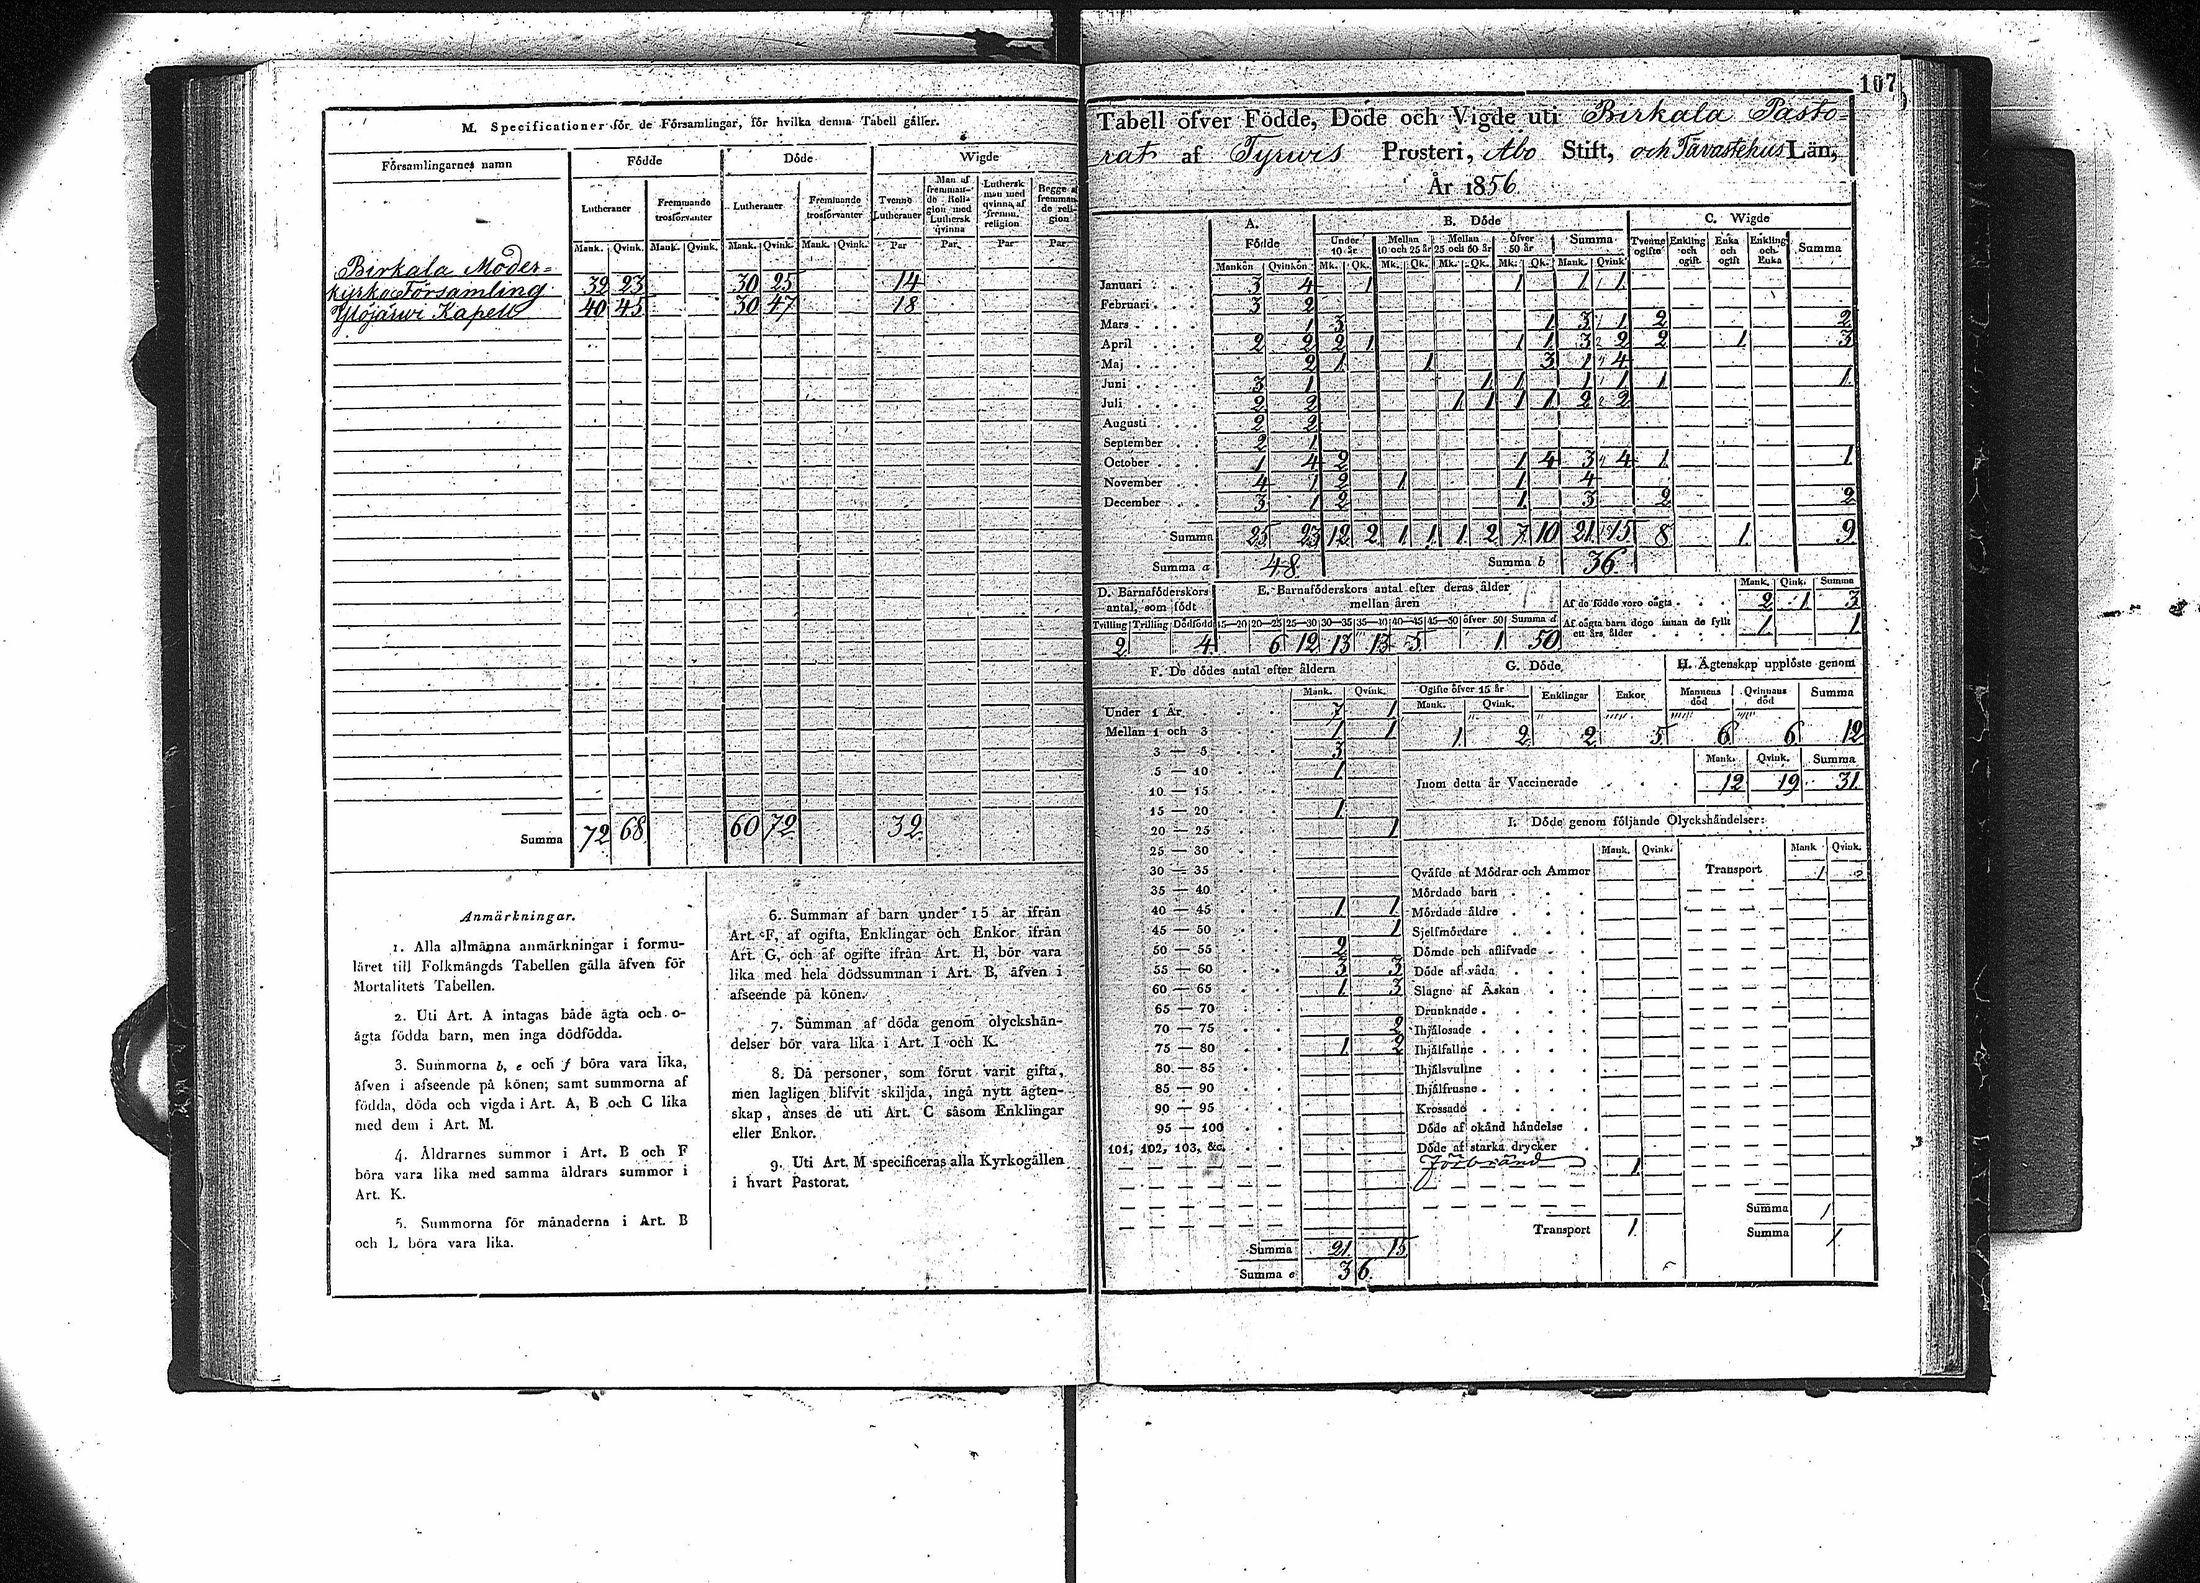 M. Specificationer för de Församlingar, för hvilka denna Tabell gäller.
Församlingarnes namn Födde Döde Wigde
Lutheraner Fremmande trosförvanter Lutheraner Fremmande trosförvanter Tvenne Lutheraner Man af fremmande Religion med Luthersk qvinna Luthersk man med qvinna af fremm. religion Begge af fremmande religion
Mank. Qvink. Mank. Qvink. Mank. Qvink. Mank. Qvink. Par Par Par Par
Birkala Moder=
kyrko Församling 32 23 30 25 14
Ylöjärwi Kapell 40 45 30 47 18
Summa 72 68 60 72 32
Anmärkningar.
1. Alla allmänna anmärkningar i formu-
läret till Folkmängds Tabellen gälla äfven för
Mortalitets Tabellen.
2. Uti Art. A intagas både ägta och o-
ägta födda barn, men inga dödfödda.
3. Summorna b, e och f böra vara lika,
äfven i afseende på könen; samt summorna af
födda, döda och vigda i Art. A, B och C lika
med dem i Art. M.
4. Åldrarnes summor i Art. B och F
böra vara lika med samma åldrars summor i
Art. K.
5. Summorna för månaderna i Art. B
och L böra vara lika.
6. Summan af barn under 15 år ifrån
Art. F, af ogifta, Enklingar och Enkor ifrån
Art. G, och af ogifte ifrån Art. H, bör vara
lika med hela dödssumman i Art. B, äfven i
afseende på könen.
7. Summan af döda genom olyckshän-
delser bör vara lika i Art. I och K.
8. Då personer, som förut varit gifta,
men lagligen blifvit skiljda, ingå nytt ägten-
skap, anses de uti Art. C såsom Enklingar
eller Enkor.
9. Uti Art. M specificeras alla Kyrkogällen
i hvart Pastorat.
107
Tabell öfver Födde, Döde och Vigde uti Birkala Pasto=
rat af Tyrwis Prosteri, Åbo Stift, och Tavastehus Län,
År 1856
A. Födde B. Döde C. Wigde
Under 10 år Mellan 10 och 25 år Mellan 25 och 50 år Öfver 50 år Summa Tvenne ogifte Enkling och ogift Enka och ogift Enkling och Enka Summa
Mankön Qvinkön Mk. Qk. Mk. Qk. Mk. Qk. Mk. Qk. Mank. Qvink.
Januari 3 4 1 1 1 1
Februari 3 2
Mars 1 3 1 3 1 2 2
April 2 2 2 1 1 1 3 2 2 1 3
Maj 2 1 1 3 1 4
Juni 3 1 1 1 1 1 1 1
Juli 2 2 1 1 1 1 2 2
Augusti 2 2
September 2 1
October 1 4 2 1 4 3 4 1 1
November 4 1 2 1 1 4
December 3 1 2 1 3 2 2
Summa 25 23 12 2 1 1 1 2 7 10 21 15 8 1 9
Summa a 48 Summa b 36
D. Barnaföderskors antal, som födt
Tvilling Trilling Dödfödd
2 4
E. Barnaföderskors antal efter deras ålder
mellan åren
15—20 20—25 25—30 30—35 35—40 40—45 45—50 öfver 50 Summa d
6 12 13 13 5 1 50
Mank. Qink. Summa
Af de födde voro oägta 2 1 3
Af oägta barn dogo innan de fyllt
ett års ålder 1 1
F. De dödes antal efter åldern
Mank. Qvink.
Under 1 År 7 1
Mellan 1 och 3 1 1
3 — 5 3
5 — 10 1
10 — 15
15 — 20 1
20 — 25 1
25 — 30
30 — 35
35 — 40
40 — 45 1 1
45 — 50 1
50 — 55 2
55 — 60 3 3
60 — 65 1 3
65 — 70
70 — 75 2
75 — 80 1 2
80 — 85
85 — 90
90 — 95
95 — 100
101, 102, 103, &c.
Summa 21 15
Summa e 36
G. Döde
Ogifte öfver 15 år Enklingar Enkor
Mank. Qvink.
1 2 2 5
H. Ägtenskap upplöste genom
Mannens död Qvinnans död Summa
6 6 12
Mank. Qvink. Summa
Inom detta år Vaccinerade 12 19 31
I. Döde genom följande Olyckshändelser:
Mank. Qvink. Mank. Qvink.
Qväfde af Mödrar och Ammor Transport 1
Mördade barn
Mördade äldre
Sjelfmördare
Dömde och aflifvade
Döde af våda
Slagne af Åskan
Drunknade
Ihjälosade
Ihjälfallne
Ihjälsvultne
Ihjälfrusne
Krossade
Döde af okänd händelse
Döde af starka drycker
Förbränd 1
Summa 1
Transport 1 Summa 1